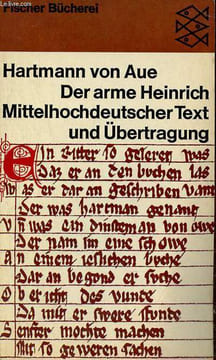 Fischer Bücherei
Hartmann von Aue
Der arme Heinrich
Mittelhochdeutscher Text
und Übertragung
Ein Ritter so geleret was
Daz er an den buchen las
was er dar an geschriben vant
Der was hartman genant
vn was ein dinstman von owe
Der nam im eine schowe
An einem ieslichen buche
Dar an begond er suche
Ob er icht des vunde
Da mit er swere stunde
Senfter mochte machen
Mit so geweren sachen